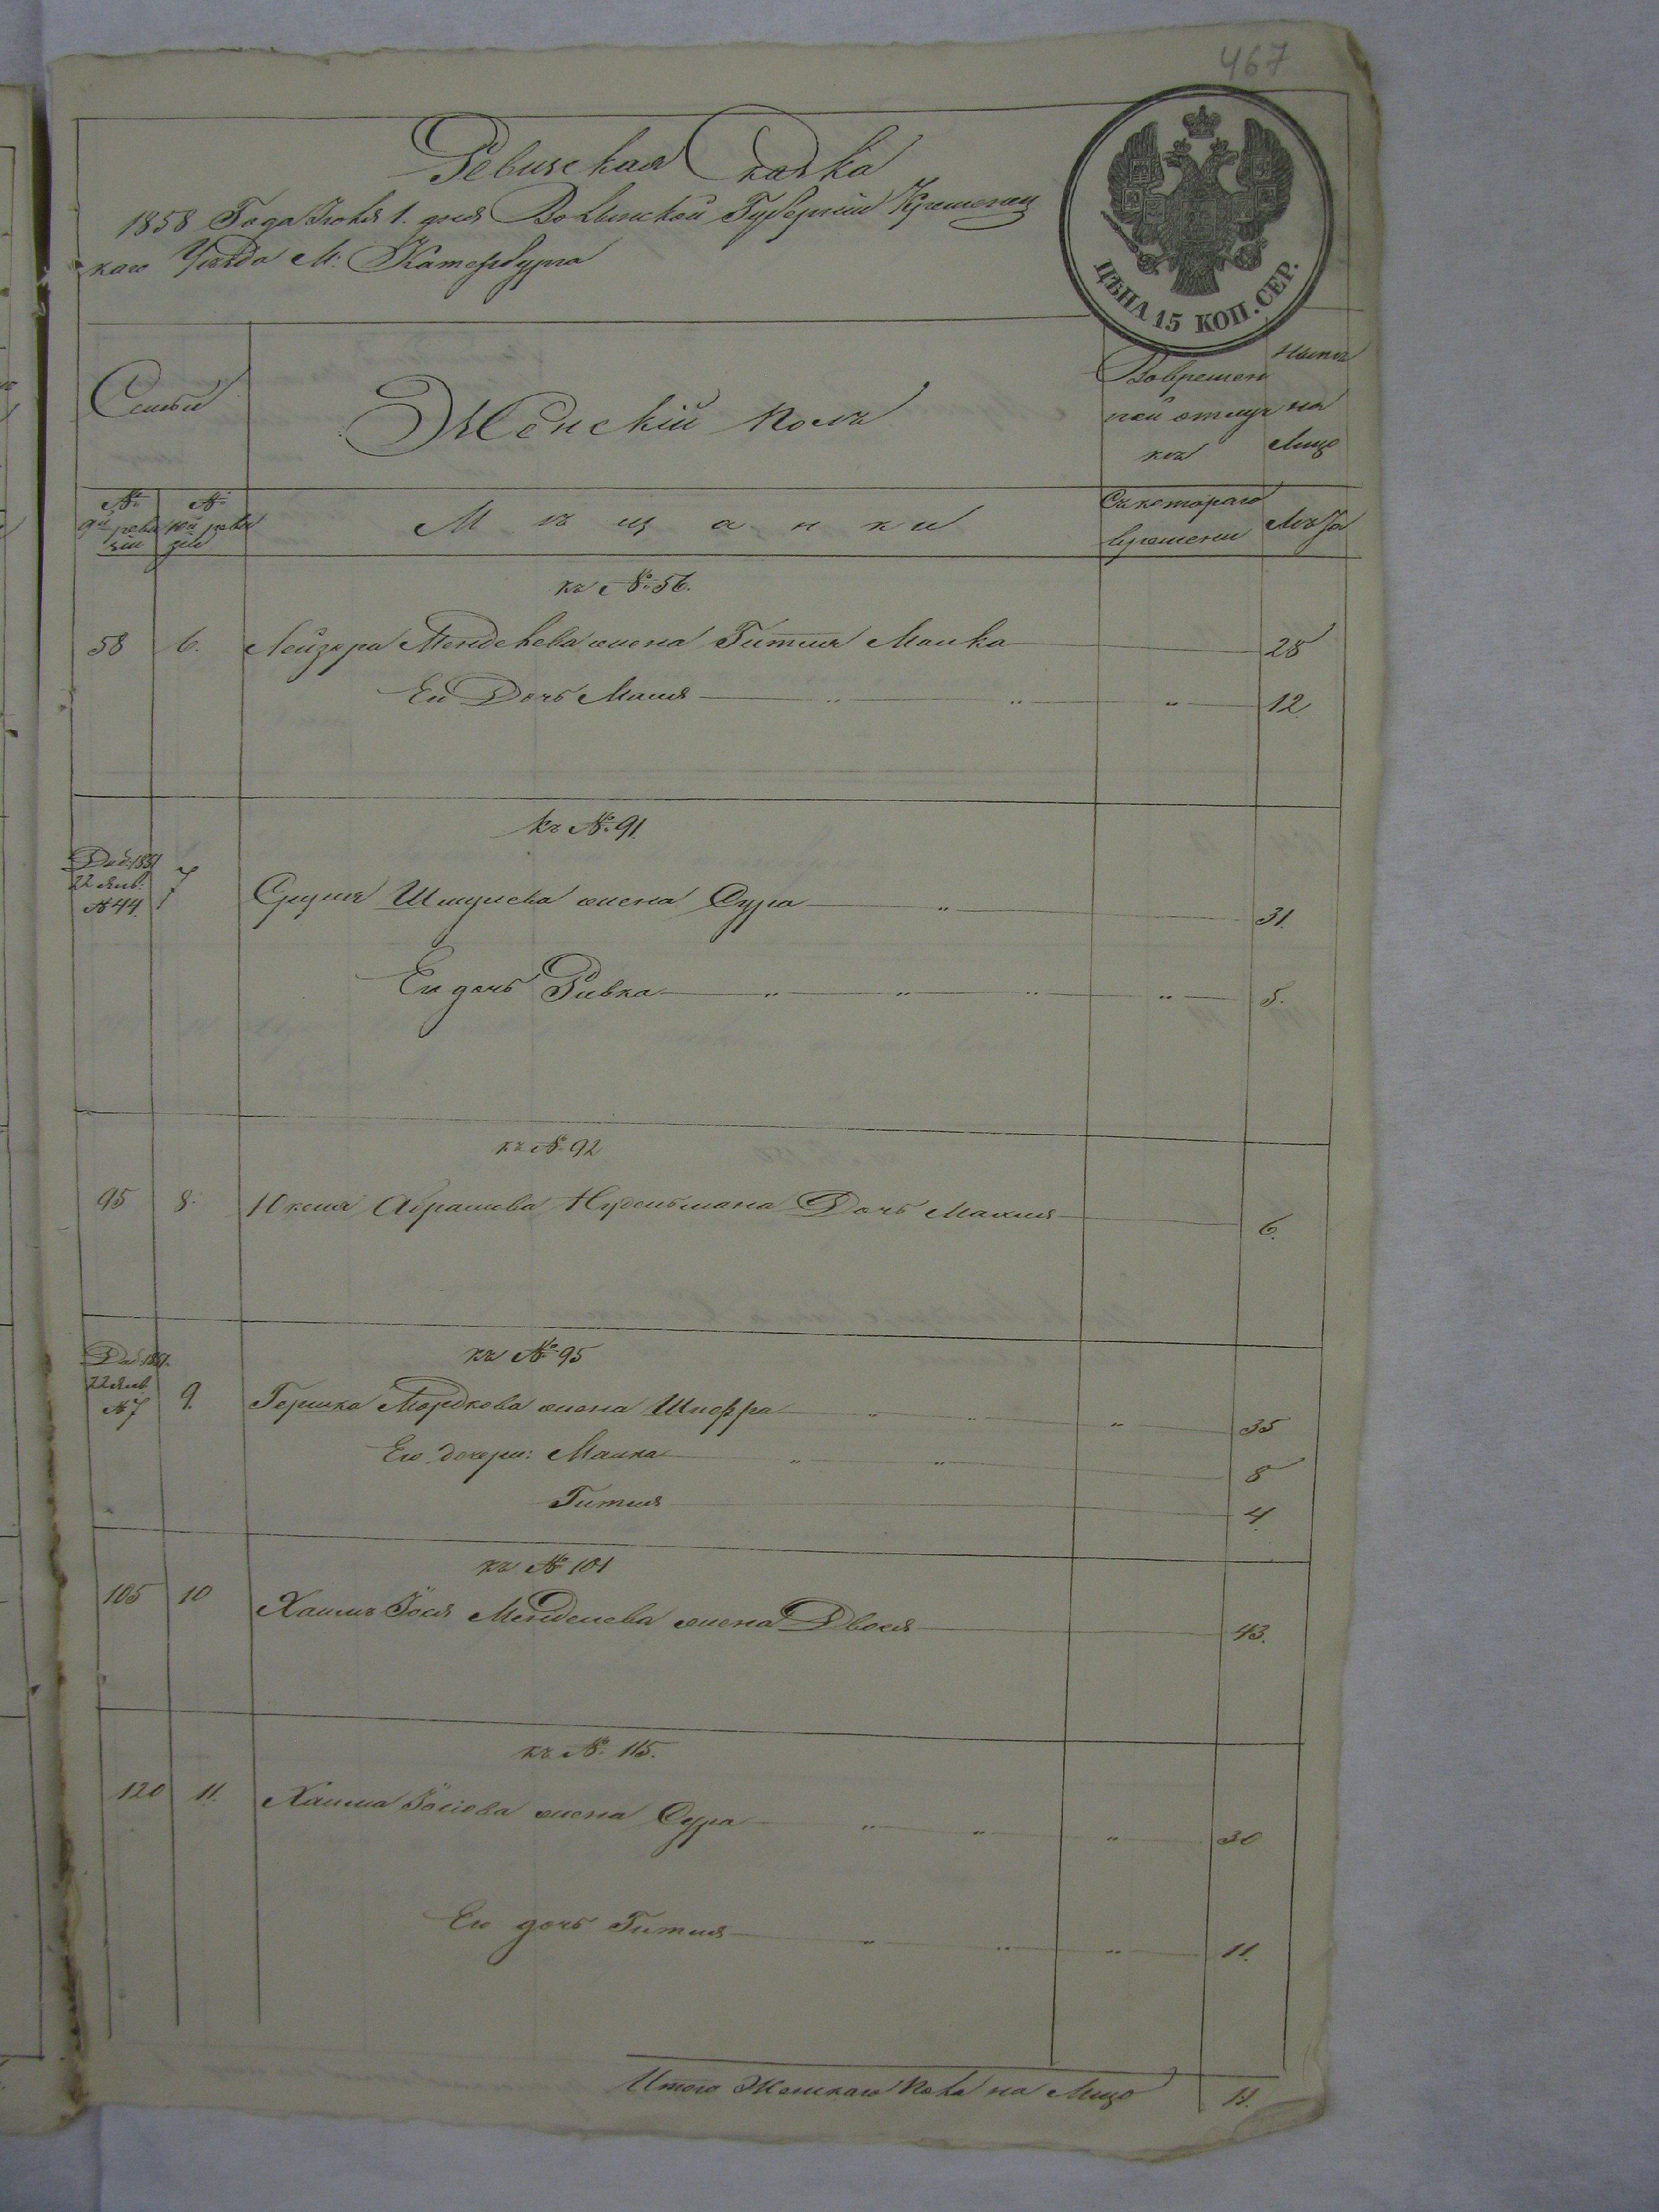 467
Ревизская Сказка
1858 Года Июня 1. дня Волынской Губернии Кременец
каго Уѣзда М: Катербурга
ЦѢНА 15 КОП. СЕР.
Семьи
Женскій полъ
Вовремен
ной отлуч
кѣ
Нынѣ
на
Лицо
№
9й реви
зіи
№
10й реви
зіи
Мѣщанки
Съ котораго
времени
Лѣта
къ № 56.
58 6. Лейзора Менделева жена Гитля Малка 28
Ея Дочь Маля 12.
къ № 91.
Доб: 1851
22 Янв:
№ 44.
7 Сруля Шмулева жена Сура 31.
Его дочь Ривка 5.
къ № 92
95 8. Юкеля Абрамова Нудельмана Дочь 6.
къ № 95
Доб: 1851.
22 Янв
№ 7
9. Гершка Мордкова жена Шифра 35
Его дочери: Малка 8
Гитля 4
къ № 101
105 10 Хаимъ Іося Менделева жена Двося 43.
къ № 115.
120 11. Хаима Іосіова жена Сура 30
Его дочь Гитля 11.
Итого Женскаго Пола на Лицо 11.